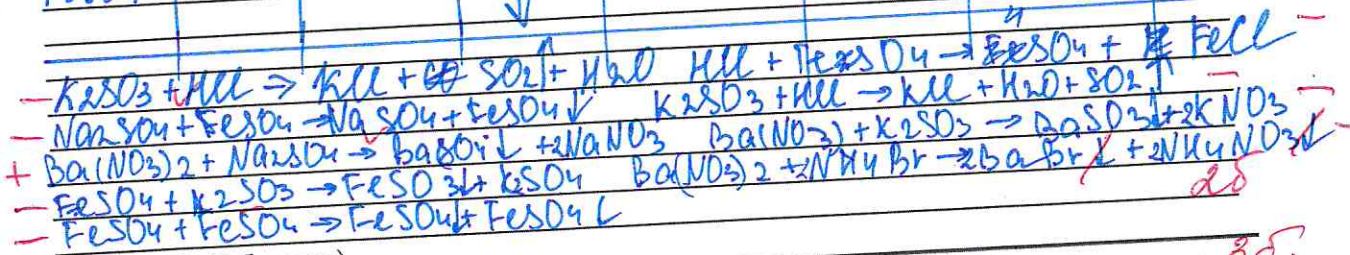 - K2SO3 + HCl ⇒ KCl + SO2↑ + H2O HCl + FeSO4 → FeSO4 + FeCl -
- Na2SO4 + FeSO4 → NaSO4 + FeSO4↓ K2SO3 + HCl → KCl + H2O + SO2↑ -
+ Ba(NO3)2 + Na2SO4 → BaSO4↓ + 2NaNO3 Ba(NO3) + K2SO3 → BaSO3↓ + 2KNO3 -
- FeSO4 + K2SO3 → FeSO3↓ + K2SO4 Ba(NO3)2 + 2NH4Br → 2BaBr↓ + 2NH4NO3↓ -
- FeSO4 + FeSO4 → FeSO4↓ + FeSO4↓
2б